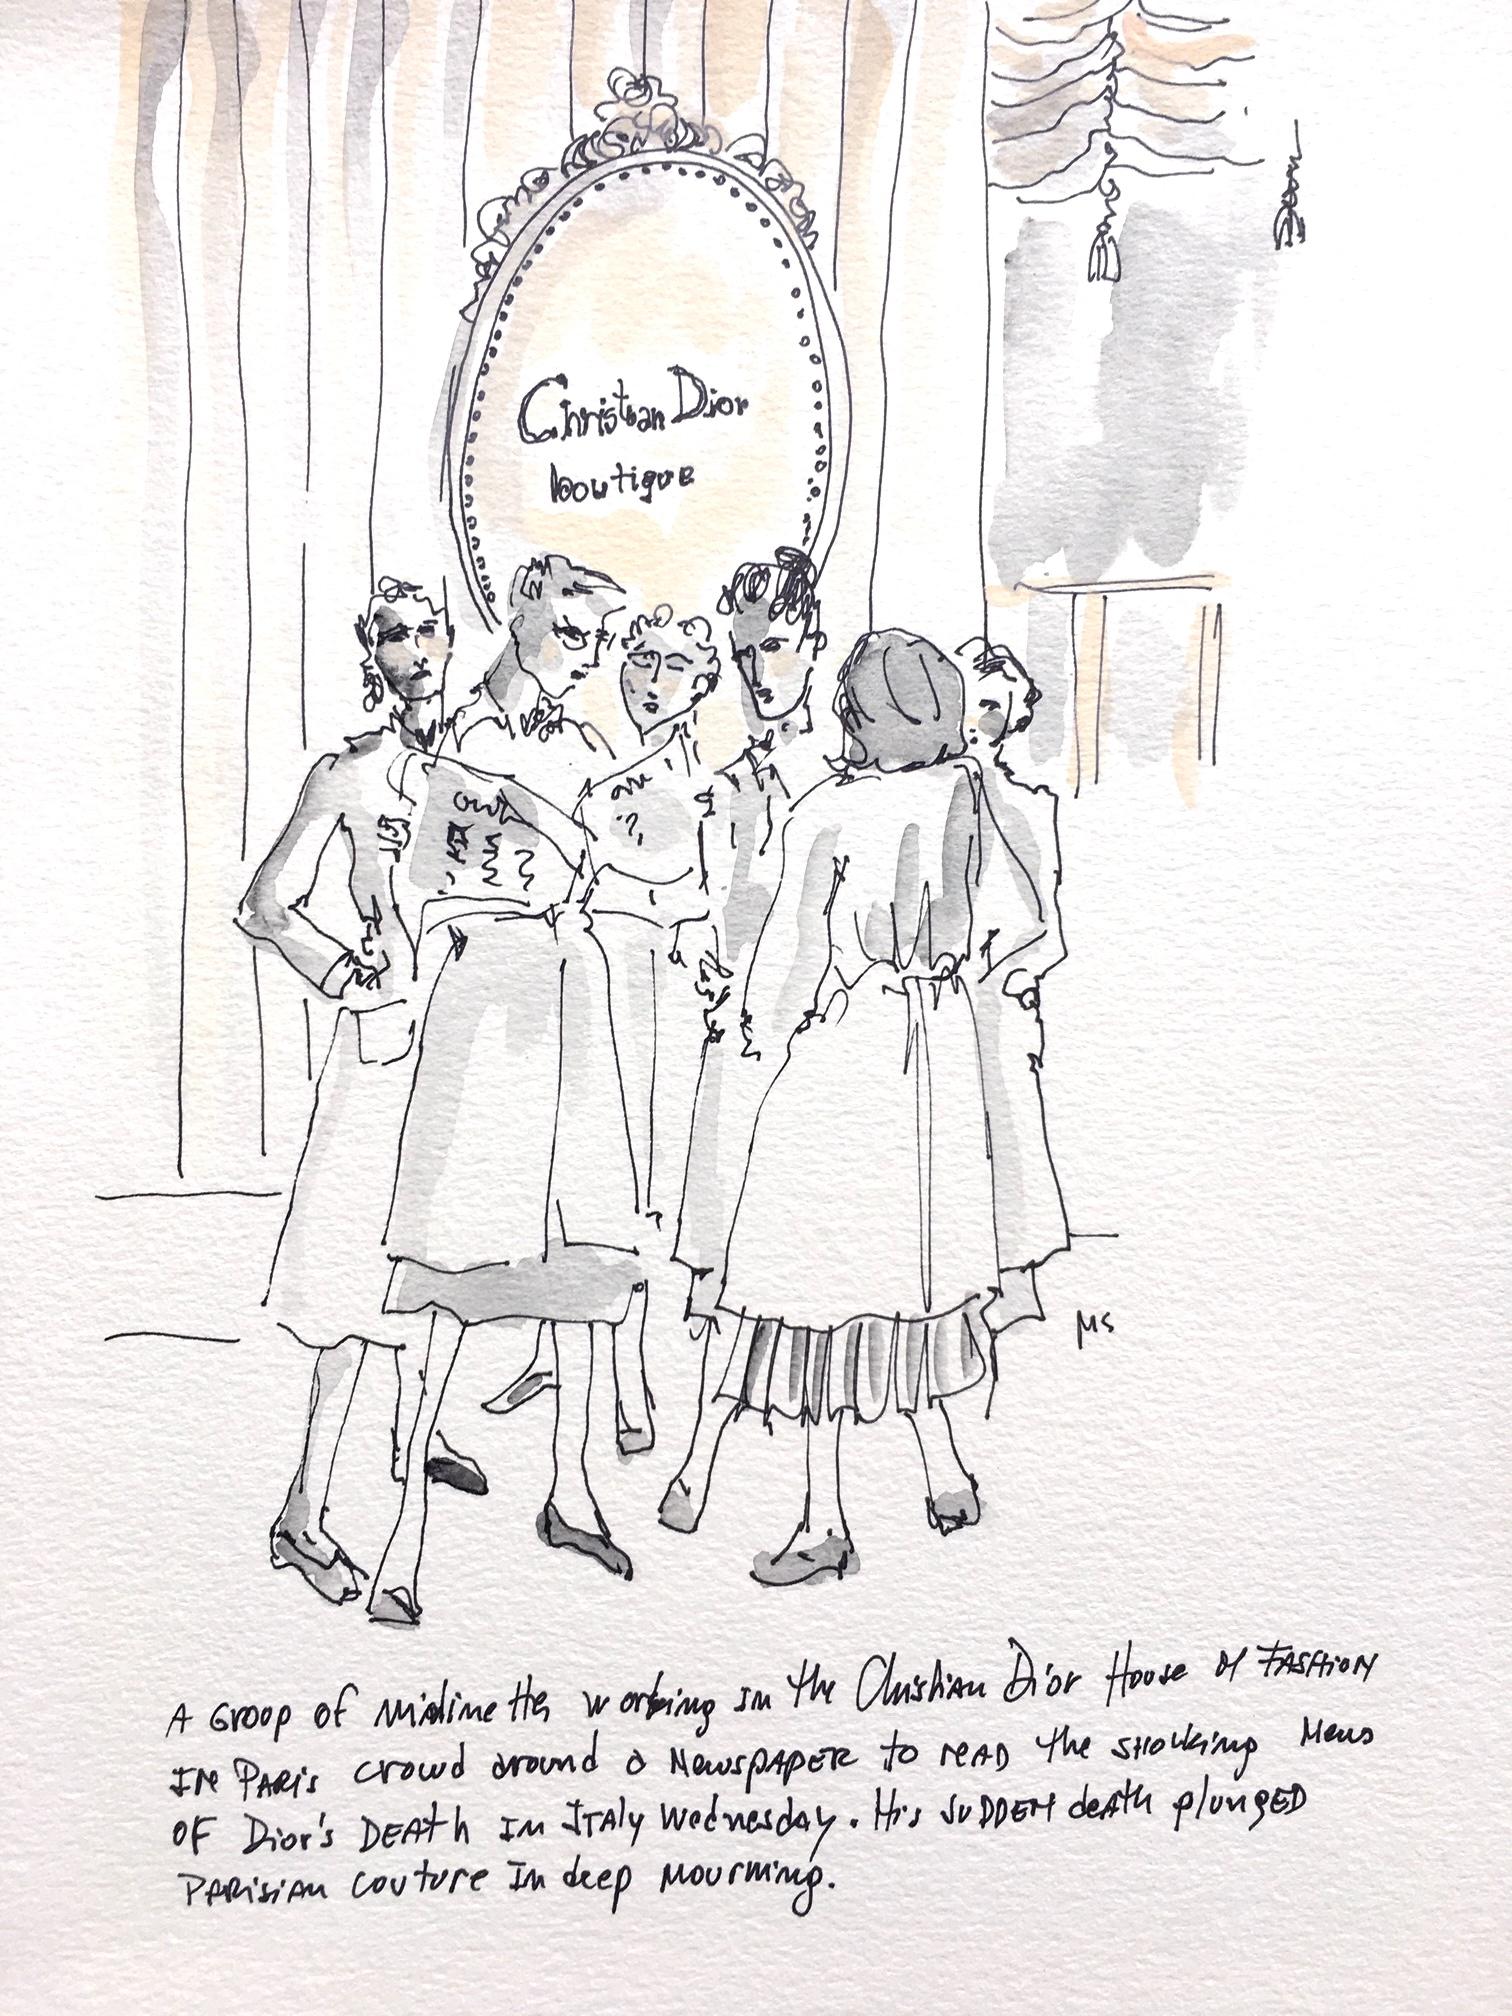 Christian Dior
boutique
MS
A GROOP OF Midinettes working IN the Christian Dior House of FASHION
IN PARis crowd around a NewspAPER to reAD the SHOcking News
OF Dior's DEAth IN ITAly Wednesday. His SUDDEN deAth plungED
PARISIAN couture IN deep MOURNING.